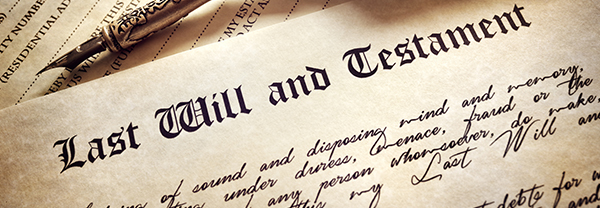 TY NUMBER
(RESIDENTIAL AD
MY ESTA
Last Will and Testament
being of sound and disposing mind and memory,
under duress, menace, fraud or the
any person whomsoever, do make,
this my Last Will and
debts for
and